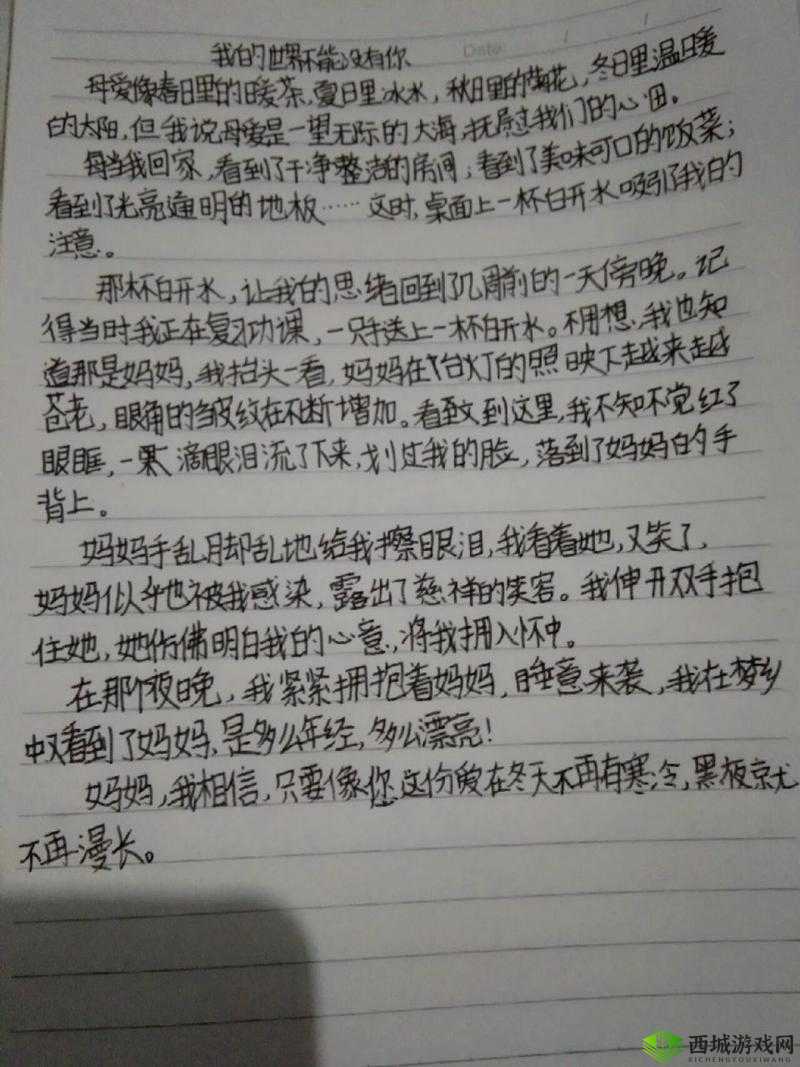 我的世界不能没有你
Date:
母爱像春日里的暖茶,夏日里冰水,秋日里的菊花,冬日里温暖
的太阳,但我说母爱是一望无际的大海,抚慰过我们的心田。
每当我回家,看到了干净整洁的房间;看到了美味可口的饭菜;
看到了光亮通明的地板……这时,桌面上一杯白开水吸引了我的
注意。
那杯白开水,让我的思绪回到了几周前的一天傍晚。记
得当时我正在复习功课,一只手送上一杯白开水。不用想,我也知
道那是妈妈,我抬头一看,妈妈在台灯的照映下越来越
苍老,眼角的皱纹在不断增加。看到这里,我不知不觉红了
眼眶,一滴眼泪流了下来,划过我的脸,落到了妈妈的手
背上。
妈妈手乱脚乱地给我擦眼泪,我看着她,又笑了,
妈妈似乎也被我感染,露出了慈祥的笑容。我伸开双手抱
住她,她仿佛明白我的心意,将我拥入怀中。
在那个夜晚,我紧紧拥抱着妈妈,睡意来袭,我在梦乡
中又看到了妈妈,是多么年经,多么漂亮!
妈妈,我相信,只要像您这份爱在冬天不再有寒冷,黑板就
不再漫长。
西城游戏网
XICHENGYOUXIWANG